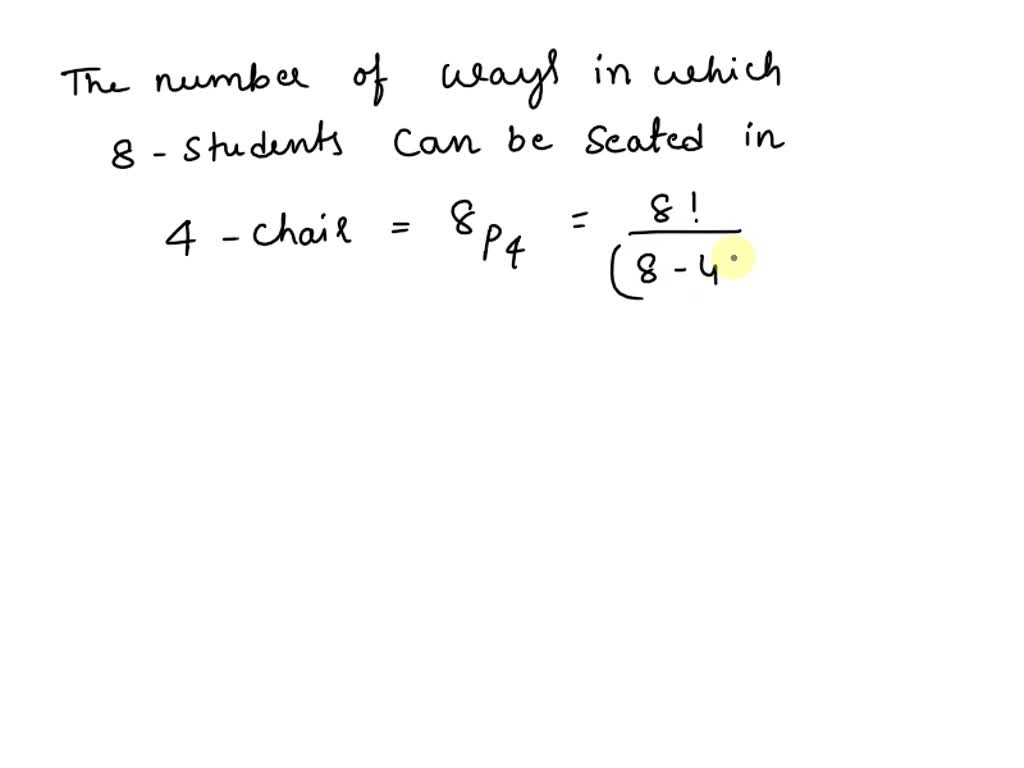 The number of ways in which
8 - students can be seated in
4 - chair = 8P4 = 8! / (8 - 4